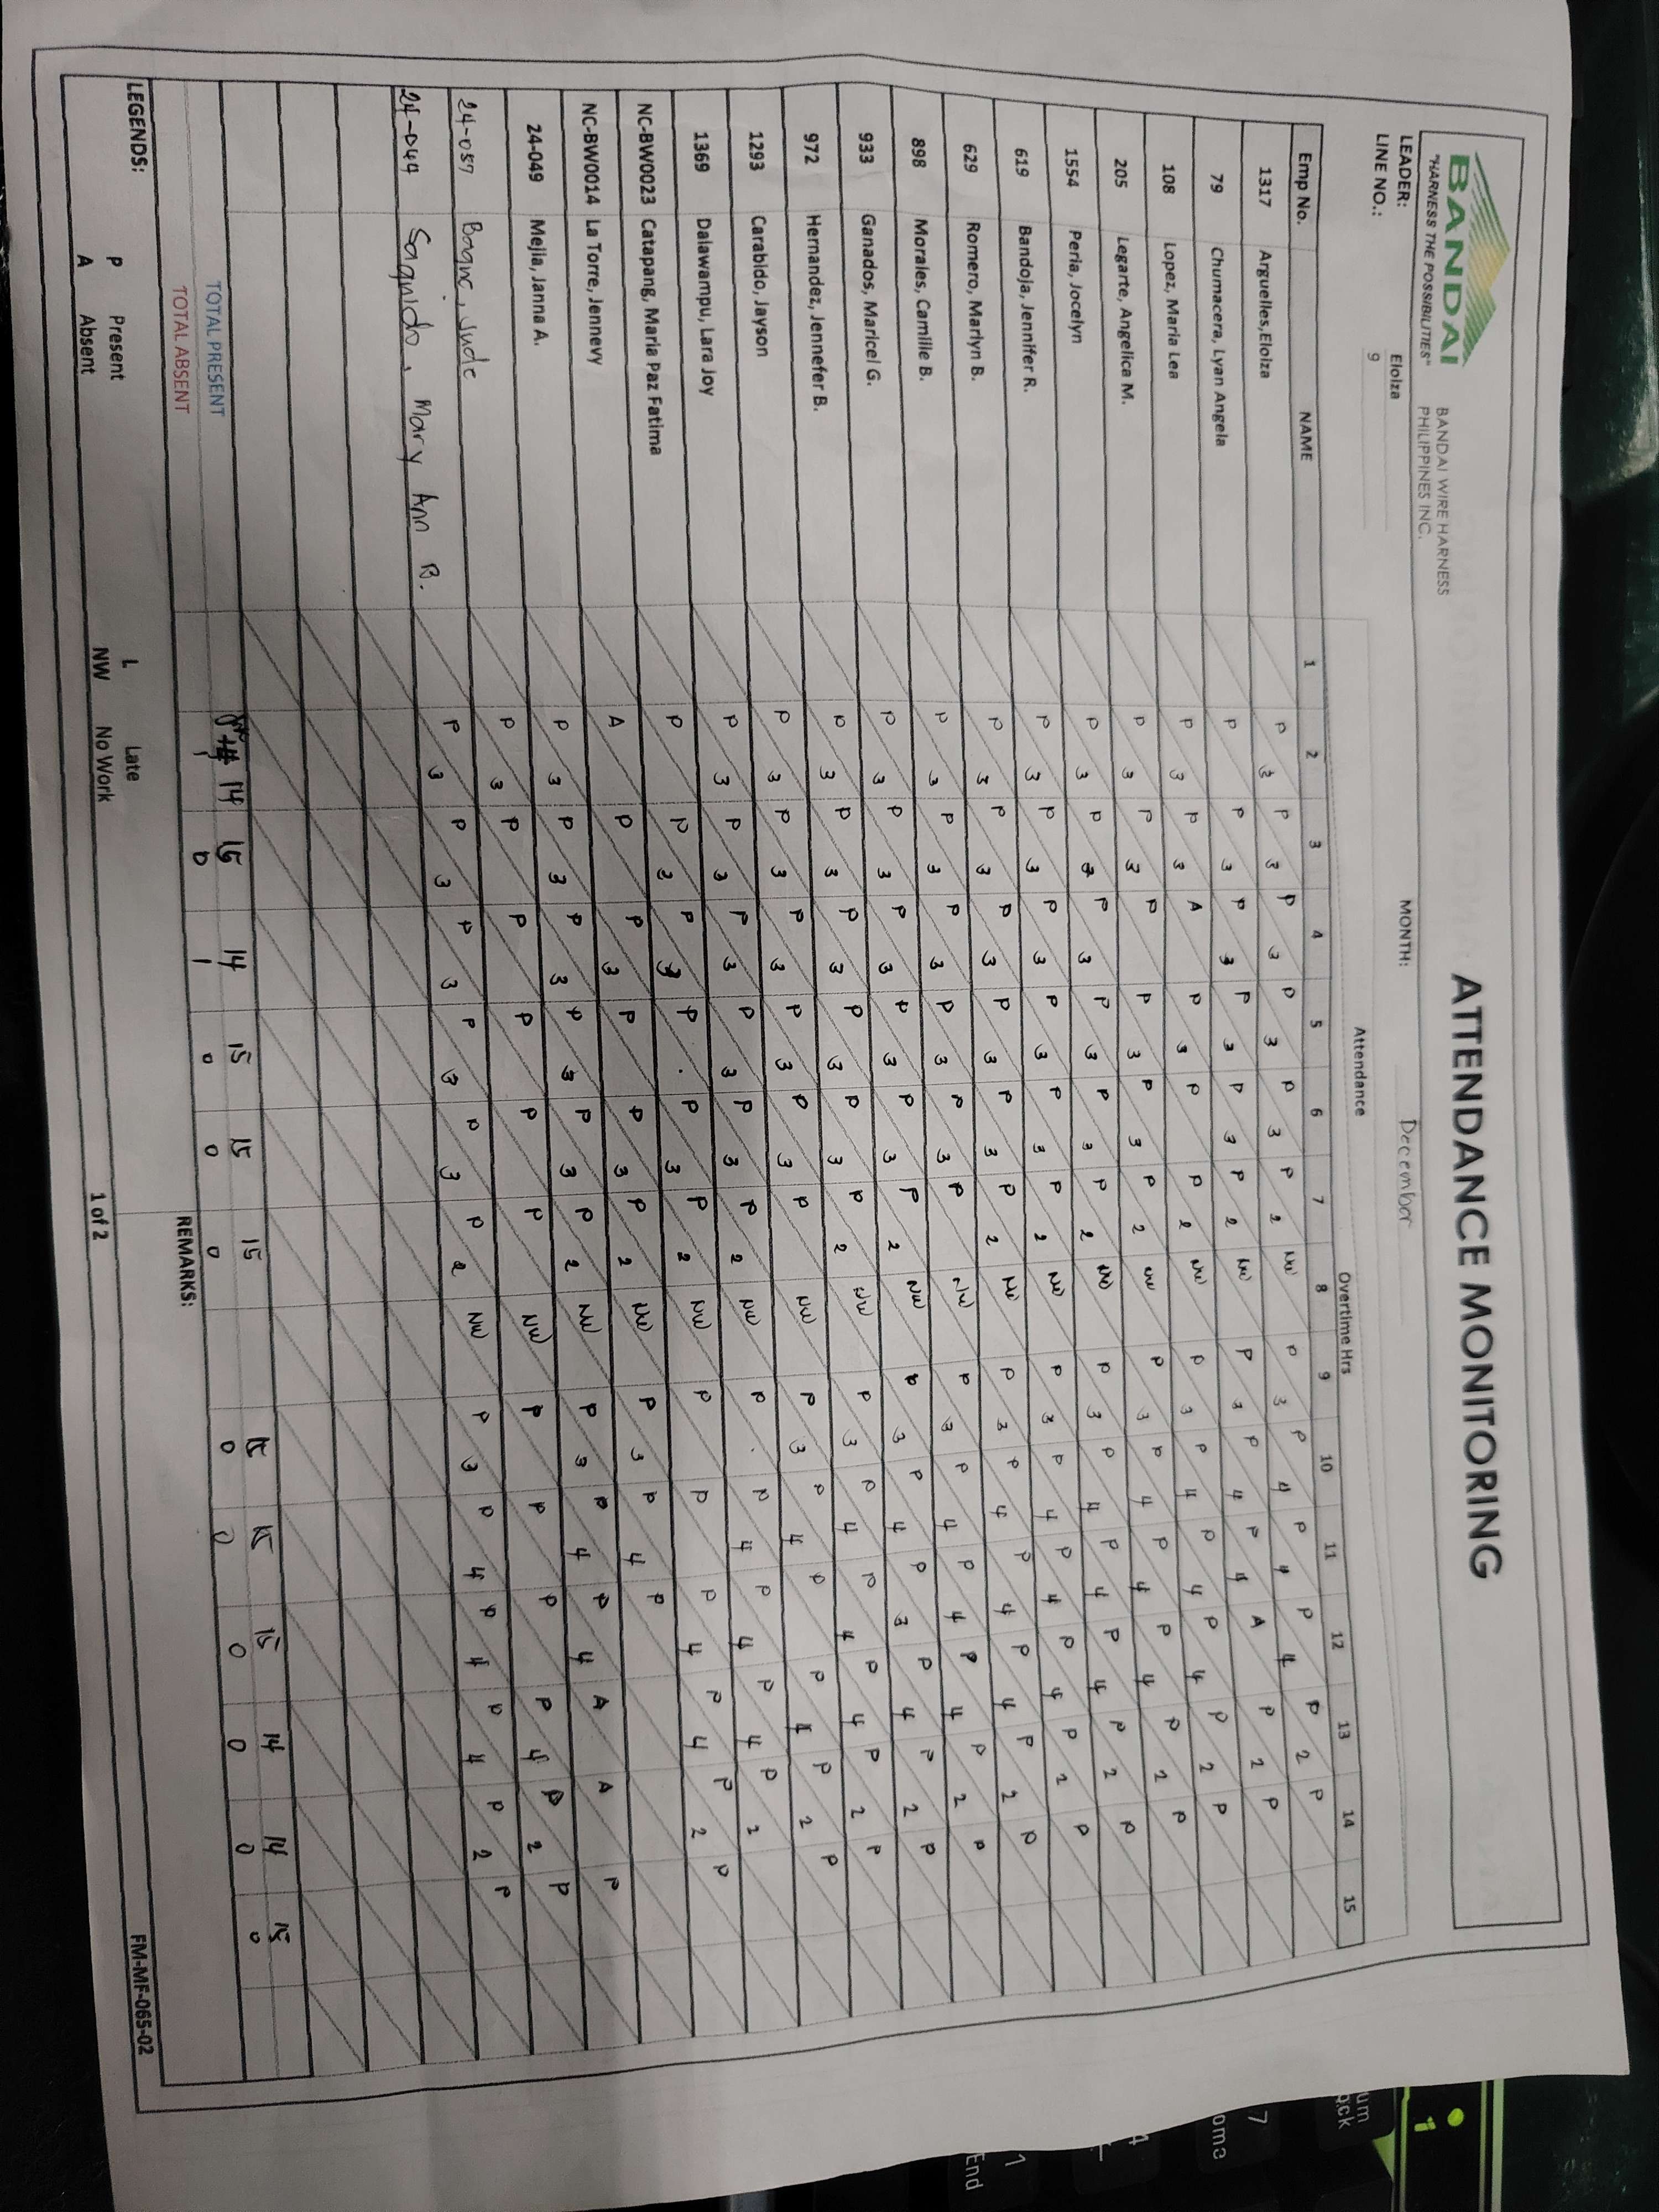 BANDAI
"HARNESS THE POSSIBILITIES"
BANDAI WIRE HARNESS
PHILIPPINES INC.
ATTENDANCE MONITORING
LEADER: Eloiza MONTH: December
LINE NO.: 9
Attendance Overtime Hrs
Emp No. NAME 1 2 3 4 5 6 7 8 9 10 11 12 13 14 15
1317 Arguelles,Eloiza P 3 P 3 P 3 P 3 P 3 P 2 NW P 3 P 4 P 4 P 4 P 2 P
79 Chumacera, Lyan Angela P P 3 P 3 P 3 P 3 P 2 NW P 3 P 4 P 4 A P 2 P
108 Lopez, Maria Lea P 3 P 3 A P 3 P P 2 NW P 3 P 4 P 4 P 4 P 2 P
205 Legarte, Angelica M. P 3 P 3 P P 3 P 3 P 2 NW P 3 P 4 P 4 P 4 P 2 P
1554 Peria, Jocelyn P 3 P 3 P 3 P 3 P 3 P 2 NW P 3 P 4 P 4 P 4 P 2 P
619 Bandoja, Jennifer R. P 3 P 3 P 3 P 3 P 3 P 2 NW P 3 P 4 P 4 P 4 P 2 P
629 Romero, Marlyn B. P 3 P 3 P 3 P 3 P 3 P 2 NW P 3 P 4 P 4 P 4 P 2 P
898 Morales, Camille B. P 3 P 3 P 3 P 3 P 3 P NW P 3 P 4 P 4 P 4 P 2 P
933 Ganados, Maricel G. P 3 P 3 P 3 P 3 P 3 P 2 NW P 3 P 4 P 3 P 4 P 2 P
972 Hernandez, Jennefer B. P 3 P 3 P 3 P 3 P 3 P 2 NW P 3 P 4 P 4 P 4 P 2 P
1293 Carabido, Jayson P 3 P 3 P 3 P 3 P 3 P NW P 3 P 4 P P 4 P 2 P
1369 Dalawampu, Lara Joy P 3 P 3 P 3 P 3 P 3 P 2 NW P P 4 P 4 P 4 P 2
NC-BW0023 Catapang, Maria Paz Fatima P P 3 P 3 P P 3 P 2 NW P P P 4 P 4 P 2 P
NC-BW0014 La Torre, Jennevy A P P 3 P P 3 P 2 NW P 3 P 4 P
24-049 Mejia, Janna A. P 3 P 3 P 3 P 3 P 3 P 2 NW P 3 P 4 P 4 A A P
24-057 Jude P 3 P P P P P NW P P P P 4 P 2 P
24-044 Mary Ann B. P 3 P 3 P 3 P 3 P 3 P 2 NW P 3 P 4 P 4 P 4 P 2 P
TOTAL PRESENT 14 15 14 15 15 15 15 15 15 14 14 15
TOTAL ABSENT 1 0 1 0 0 0 0 0 0 0 0 0
REMARKS:
LEGENDS:
P Present L Late
A Absent NW No Work
1 of 2
FM-MF-065-02